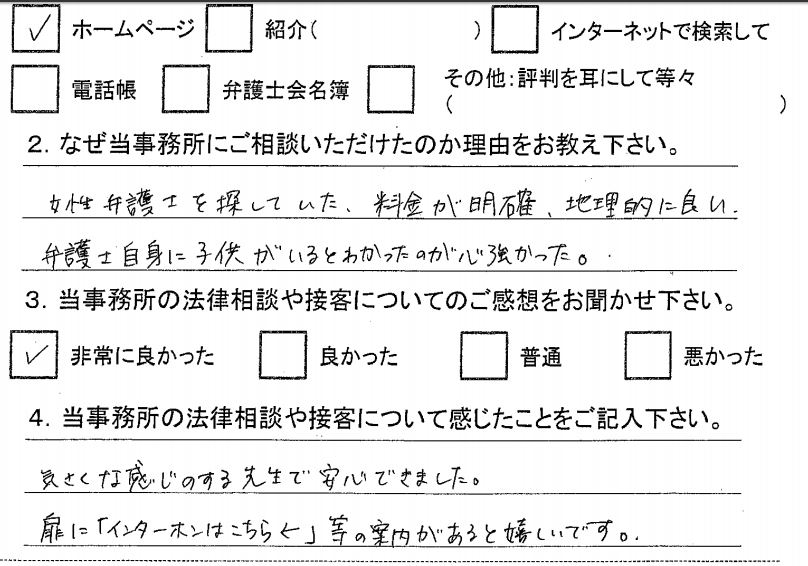 ☑ ホームページ □ 紹介( ) □ インターネットで検索して
□ 電話帳 □ 弁護士会名簿 □ その他:評判を耳にして等々
( )
2. なぜ当事務所にご相談いただけたのか理由をお教え下さい。
女性弁護士を探していた、料金が明確、地理的に良い.
弁護士自身に子供がいるとわかったのが心強かった。
3. 当事務所の法律相談や接客についてのご感想をお聞かせ下さい。
☑ 非常に良かった □ 良かった □ 普通 □ 悪かった
4. 当事務所の法律相談や接客について感じたことをご記入下さい。
気さくな感じのする先生で安心できました。
扉に「インターホンはこちら←」等の案内があると嬉しいです。